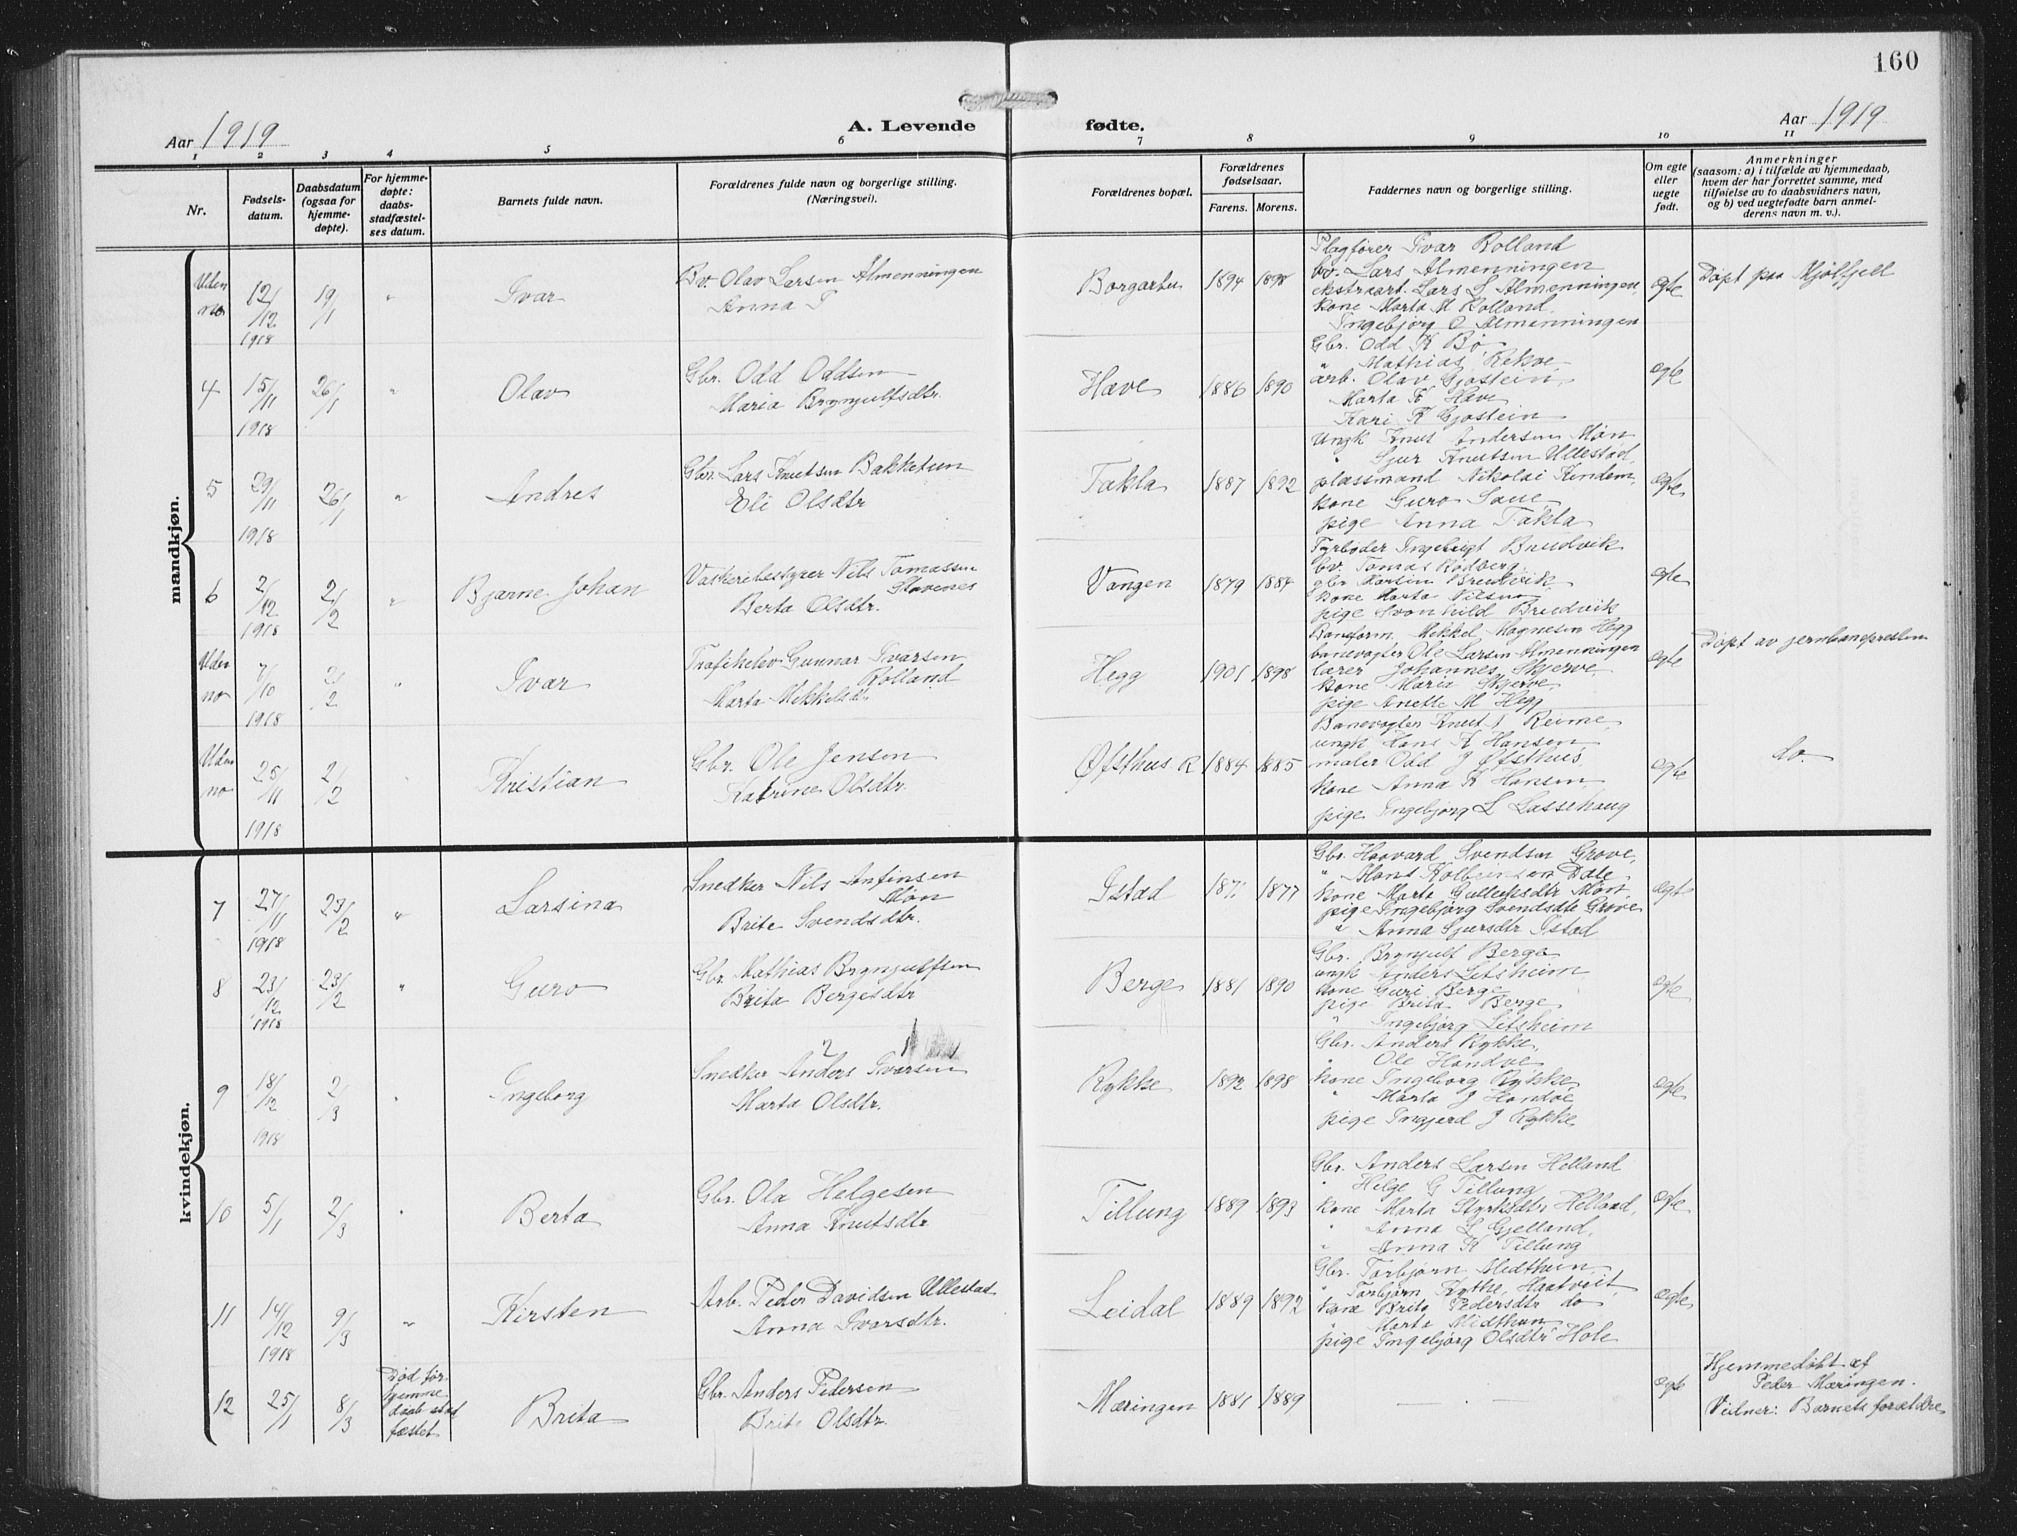 160
Aar 1919 A. Levende fødte. Aar 1919
1 2 3 4 5 6 7 8 9 10 11
Nr.
Fødsels-
datum.
Daabsdatum
(ogsaa for
hjemme-
døpte).
For hjemme-
døpte:
daabs-
stadfæstel-
ses datum.
Barnets fulde navn.
Forældrenes fulde navn og borgerlige stilling.
(Næringsvei).
Forældrenes bopæl.
Forældrenes
fødselsaar.
Farens. Morens.
Faddernes navn og borgerlige stilling.
Om egte
eller
uegte
født.
Anmerkninger
(saasom: a) i tilfælde av hjemmedaab,
hvem der har forrettet samme, med
tilføielse av to daabsvidners navn,
og b) ved uegtefødte barn anmel-
derens navn m. v.).
mandkjøn.
Uden no 12/12 1918 19/1 " Ivar
Bv. Olav Larsen Almenningen
Anna I
Borgarten 1894 1898
Ivar Rolland
bv. Lars Almenningen
ekstraarb. Lars L Almenningen,
kone Marta M Rolland,
Ingebjørg O Almenningen
egte
Døpt paa Mjølfjell
4 15/11 1918 26/1 " Olav
Gbr. Odd Oddsen
Maria Brynjulfsdtr.
Hæve 1886 1890
Gbr. Odd K Bø
" Mathias Rekve,
arb. Olav Gjøstein,
Marta K Hæve
Kari K Gjøstein
egte
5 29/11 1918 26/1 " Andres
Gbr. Lars Knutsen Bakketun
Eli Olsdtr
Takla 1887 1892
Ungk Knut Andersen Møn
" Sjur Knutsen Ullestad,
plassmand Nikolai Kindem,
kone Guro Saue,
pige Anna Takla
egte
6 2/12 1918 2/2 " Bjarne Johan
Vaskeribestyrer Nils Tomassen
Stavenes
Berta Olsdtr.
Vangen 1879 1884
Fyrbøder Ingebrigt Bredvik
bv. Tomas Rødberg,
gbr. Karsten Bredvik,
kone Marta Nilsen
pige Svanhild Bredvik
egte
Uden no 7/10 1918 2/2 " Ivar
Trafikelev Gunnar Ivarsen
Rolland
Marta Mikkelsd.
Hegg 1901 1898
Baneform. Mikkel Magnesen Hegg
banevogter Ole Larsen Almenningen
lærer Johannes Skjerve,
kone Maria Skjerve,
pige Anette M Hegg
egte
Døpt av jernbanepresten
Uden no 25/11 1918 2/2 Kristian
Gbr. Ole Jensen
Katrine Olsdtr.
Øfsthus R 1884 1885
Banevogter Knut J Reime,
ungk Hans K Hansen,
maler Odd J Øfsthus,
kone Anna K Hansen,
pige Ingebjørg L Lassehaug
egte
do.
kvindekjøn.
7 27/11 1918 23/2 " Larsina
Snedker Nils Anfinsen
Møn
Brite Svendsdtr.
Istad 1877
Gbr. Haavard Svendsen Grove,
" Mons Kolbeinsen Dale,
kone Marta Gulleiksdtr Møn
pige Ingebjørg Svendsdtr Grove
" Anna Sjursdtr Istad
egte
8 23/12 1918 23/2 " Guro
Gbr. Mathias Brynjulfsen
Brita Bergesdtr
Berge 1881 1890
Gbr. Brynjulf Berge
ungk Anders Litsheim
kone Guri Berge
pige Brita Berge
" Ingebjørg Litsheim
egte
9 18/12 1918 2/3 " Ingeborg
2 1
Snedker Anders Ivarsen
Marta Olsdtr.
Rykke 1892 1898
Gbr. Anders Rykke,
" Ole Hondve,
kone Ingeborg Rykke,
" Marta J Hondve
pige Ingjerd J Rykke
egte
10 5/1 2/3 " Berta
Gbr. Ola Helgesen
Anna Knutsdtr
Tillung 1889 1893
Gbr. Anders Larsen Helland
" Helge G Tillung
kone Marta Styrksdtr Helland,
" Anna L Gjelland,
" Anna K Tillung
egte
11 14/12 1918 9/3 " Kirsten
Arb. Peder Davidsen Ullestad
Anna Ivarsdtr.
Leidal 1889 1892
Gbr. Torbjørn Midthun,
" Torbjørn Kythe, Haatveit,
kone Brita Pedersdtr do
" Marta Midthun
pige Ingebjørg Olsdtr Hole
egte
12 25/1 8/3
Død før
hjemme
daab stad
fæstet
Brita
Gbr. Anders Pedersen
Brite Olsdtr.
Mæringen 1881 1889
— " —
egte
Hjemmedøbt af
Peder Mæringen.
Vidner: Barnets forældre